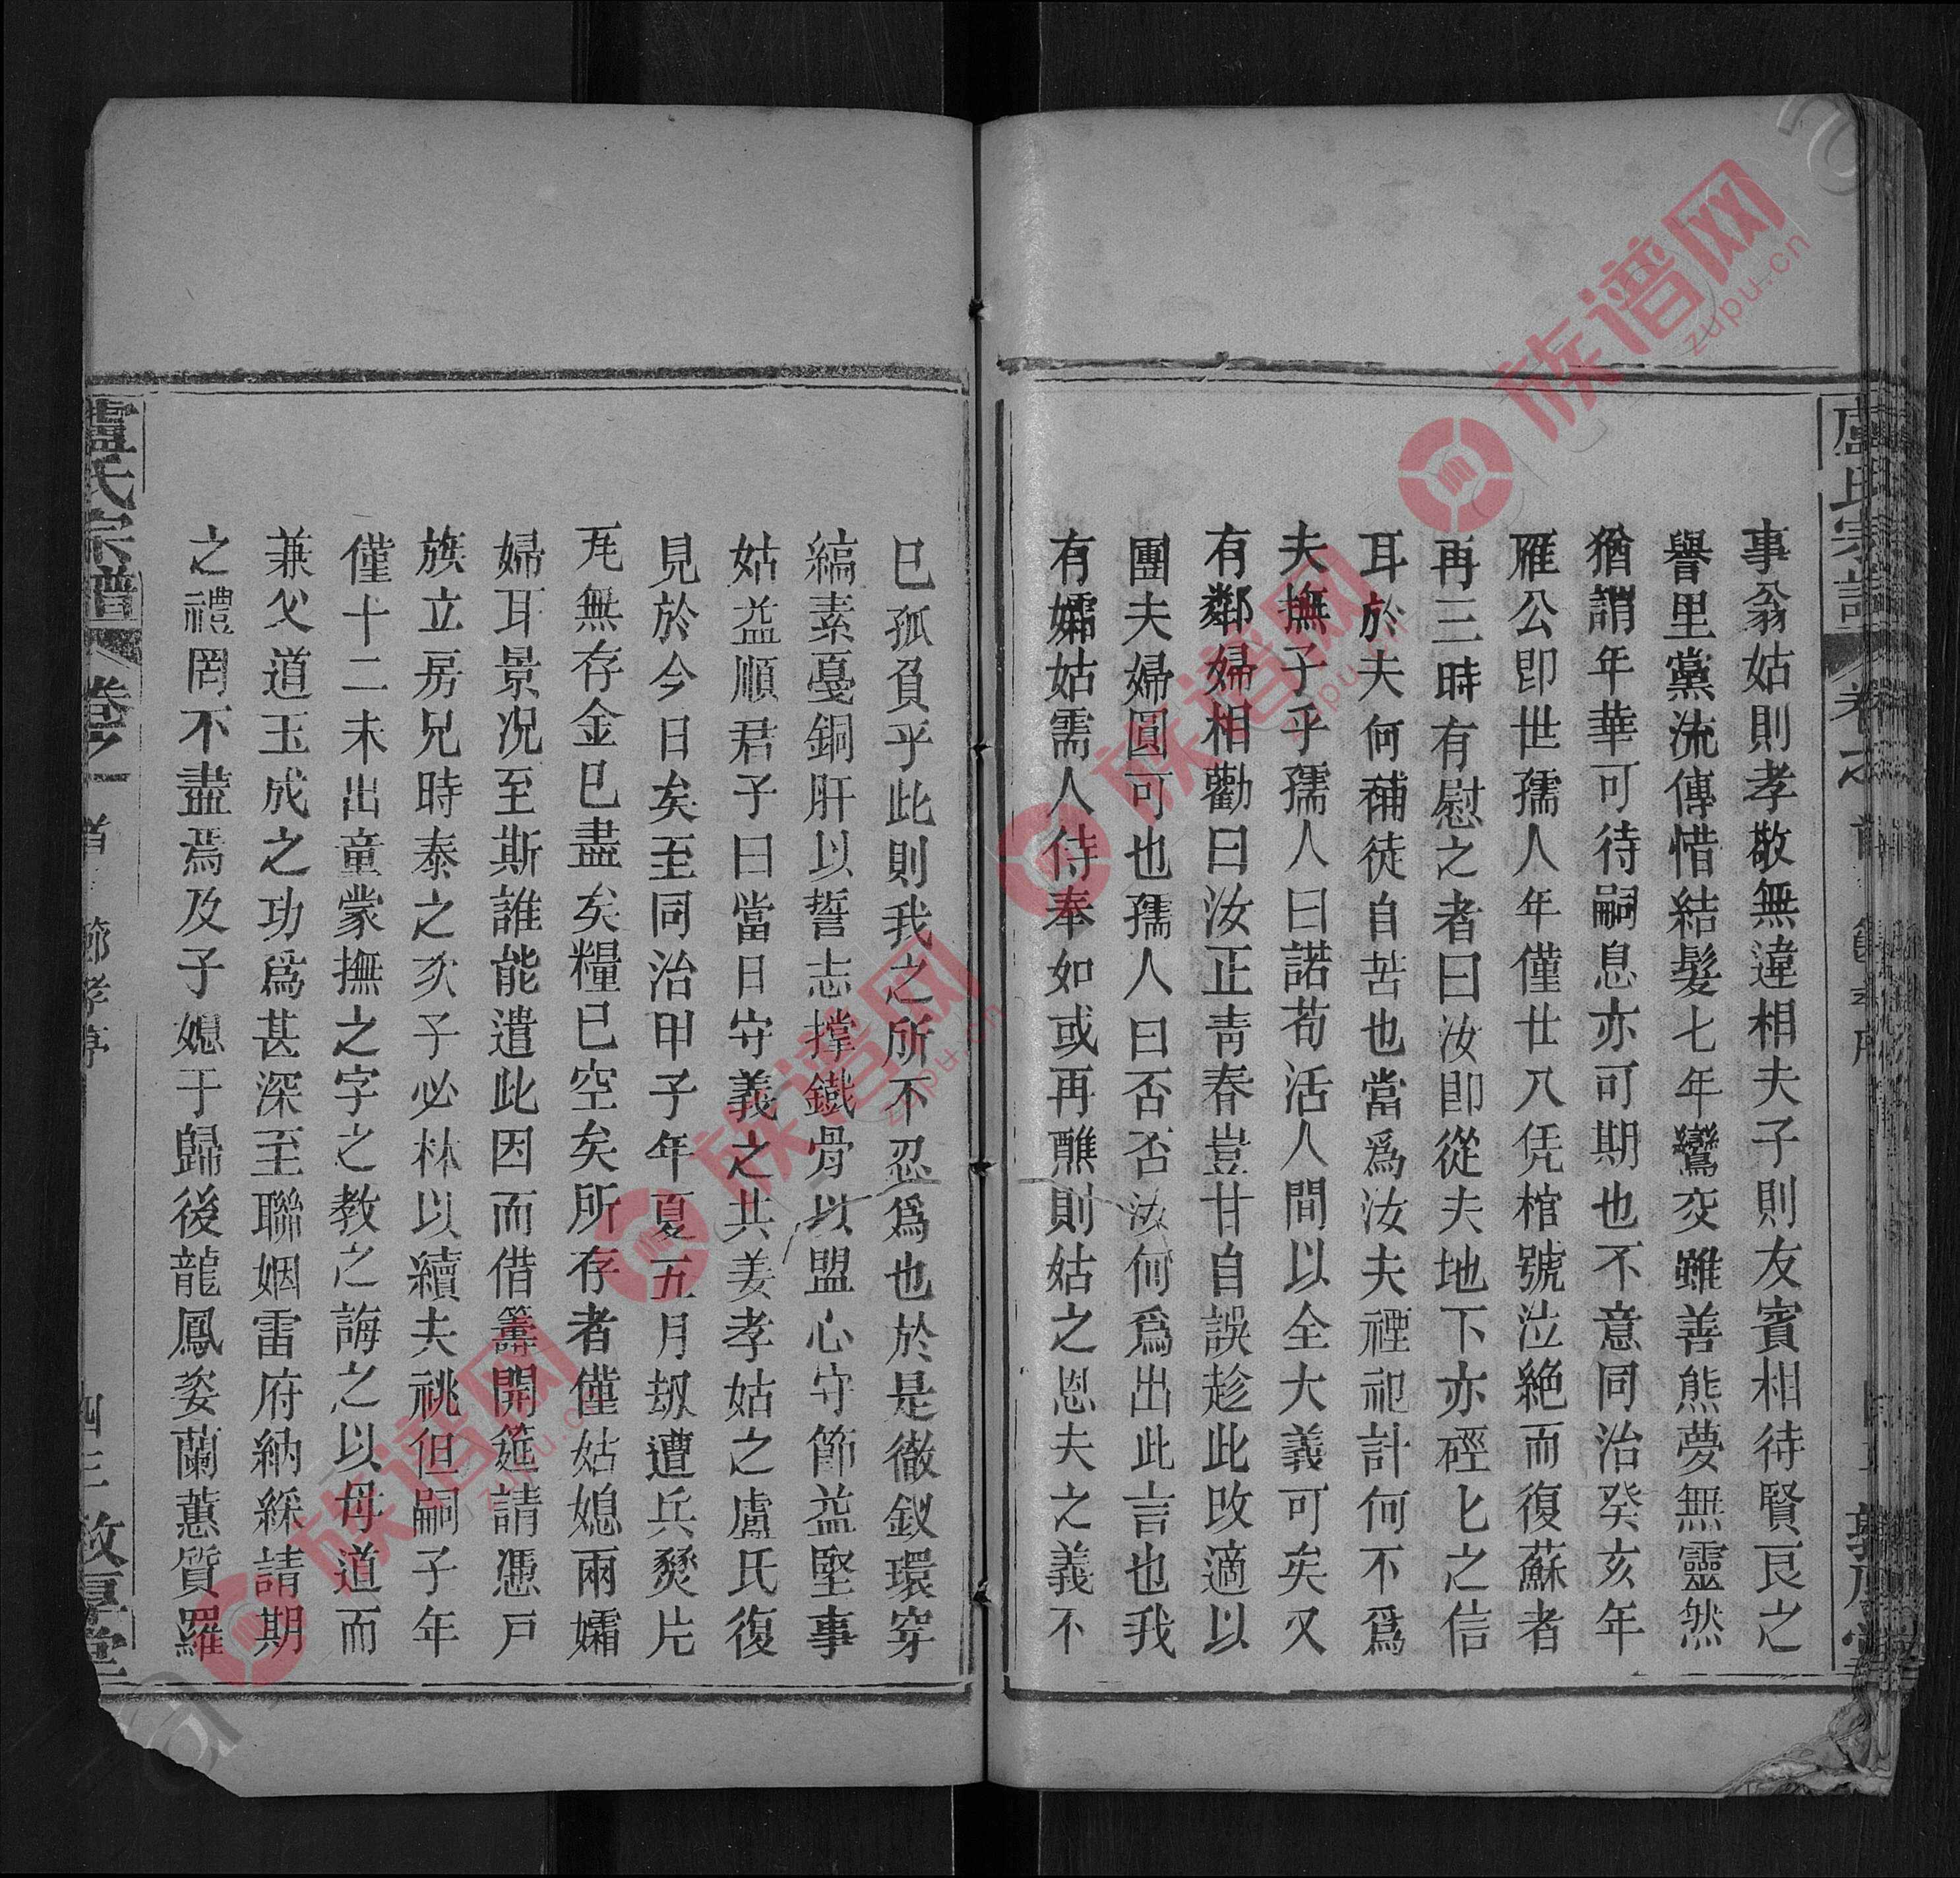 事翁姑則孝敬無違相夫子則友賓相待賢良之
譽里黨流傳惜結髮七年鸞交雖善熊夢無靈然
猶謂年華可待嗣息亦可期也不意同治癸亥年
雁公即世孺人年僅廿八凭棺號泣絶而復蘇者
再三時有慰之者曰汝即從夫地下亦硜匕之信
耳於夫何補徒自苦也當爲汝夫禋祀計何不爲
夫撫子乎孺人曰諾苟活人間以全大義可矣又
有鄰婦相勸曰汝正青春豈甘自誤趁此改適以
團夫婦圓可也孺人曰否否汝何爲出此言也我
有孀姑需人侍奉如或再醮則姑之恩夫之義不
已孤負乎此則我之所不忍爲也於是徹釵環穿
縞素戛銅肝以誓志撑鐵骨以盟心守節益堅事
姑益順君子曰當日守義之共姜孝姑之盧氏復
見於今日矣至同治甲子年夏五月刼遭兵燹片
瓦無存金已盡矣糧已空矣所存者僅姑媳兩孀
婦耳景况至斯誰能遣此因而借籌開筵請憑戸
族立房兄時泰之次子必林以續夫祧但嗣子年
僅十二未出童蒙撫之字之教之誨之以母道而
兼父道玉成之功爲甚深至聯姻雷府納綵請期
之禮罔不盡焉及子媳于歸後龍鳳姿蘭蕙質羅
盧氏宗譜 卷之一 首 節孝亭 四三 敦厚堂